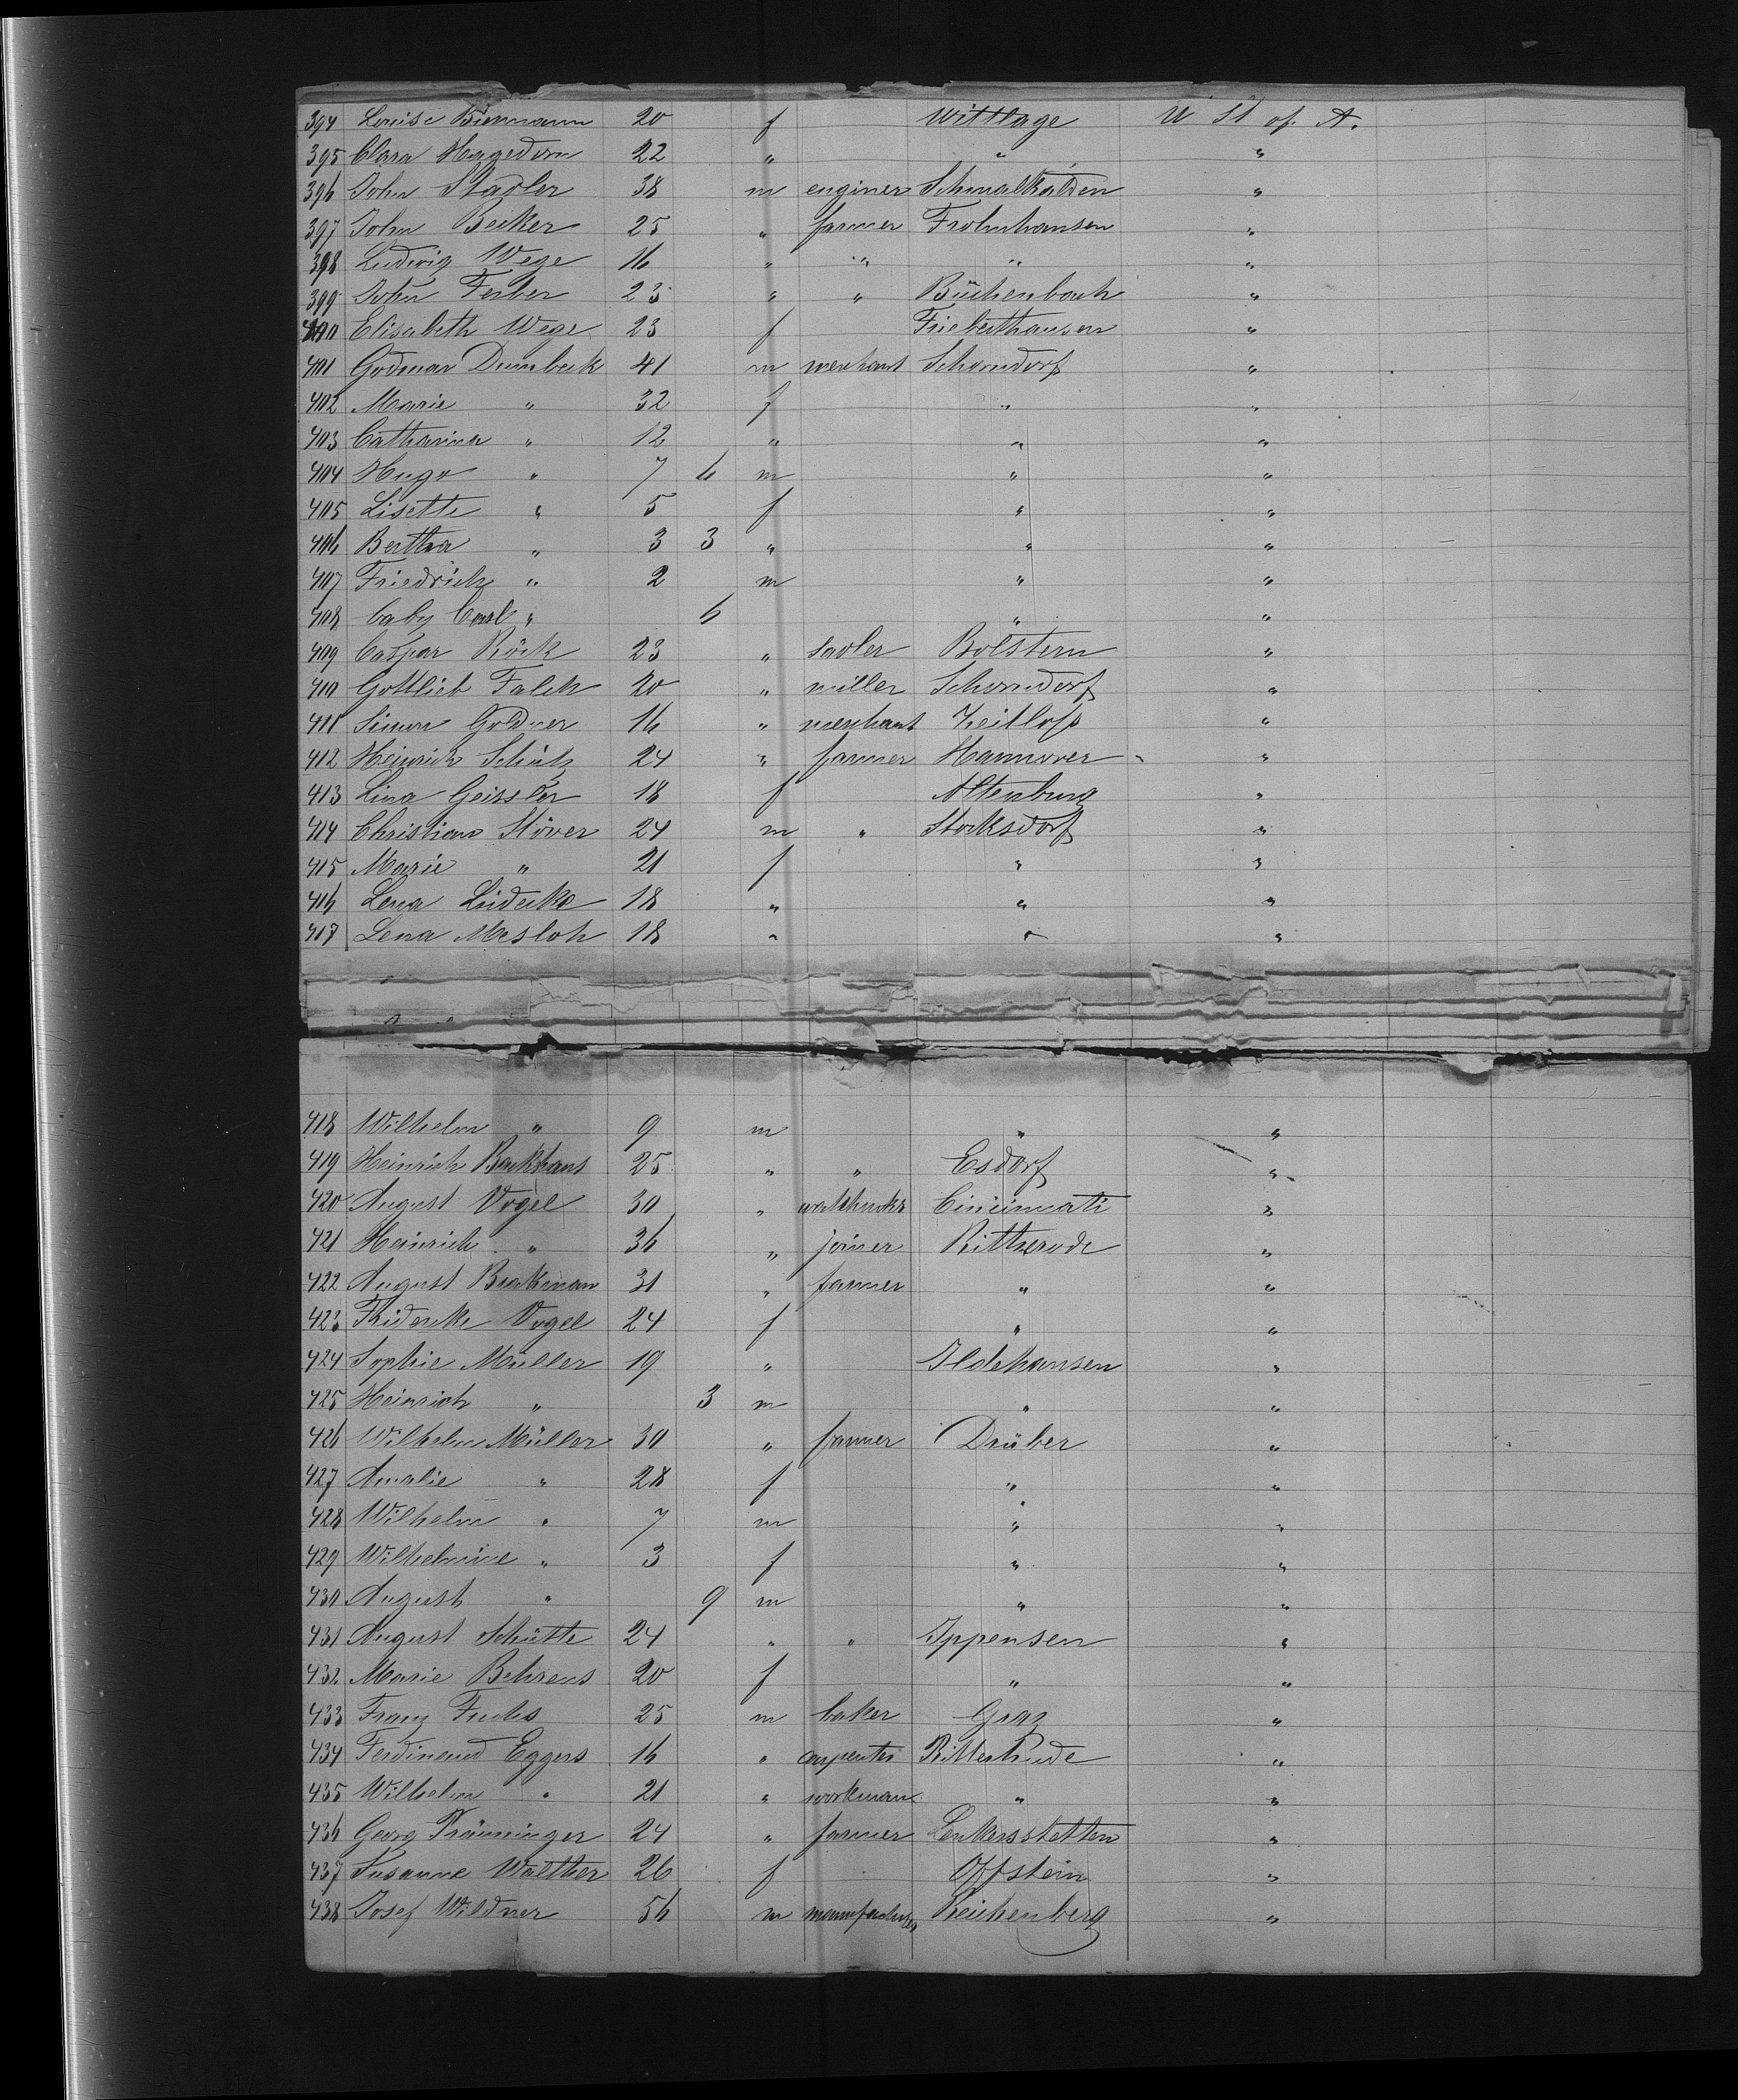 394 Louise Biermann 20 f Wittlage U St of. A.
395 Clara Hagedorn 22 " " "
396 John Stadler 38 m enginer Schmalkalden "
397 John Becker 25 " farmer Frohnhausen "
398 Ludwig Wege 16 " " " "
399 John Ferber 23 " " Büchenbach "
400 Elisabeth Wege 23 f Frieberthausen "
401 Godmar Dumbeck 41 m merchant Schorndorf "
402 Marie " 32 f " "
403 Catharina " 12 " " "
404 Hugo " 7 6 m " "
405 Lisette " 5 f " "
406 Bertha " 3 3 " " "
407 Friedrich " 2 m " "
408 baby Carl " 6 " "
409 Caspar Röck 23 " sadler Bolstern "
410 Gottlieb Falch 20 " miller Schorndorf "
411 Simon Goldner 16 " merchant Zeitlofs "
412 Heinrich Schütz 24 " farmer Hannover "
413 Lina Geissler 18 f Altenburg "
414 Christian Stöver 24 m " Stocksdorf "
415 Marie " 21 f " "
416 Lena Lüdeke 18 " " "
417 Lena Mesloh 18 " " "
418 Wilhelm " 9 m " "
419 Heinrich Backhaus 25 " " Esdorf "
420 August Vogel 30 " Cincinnati "
421 Heinrich " 36 " joiner Rittierode "
422 August Brakman 31 " farmer " "
423 Friderike Vogel 24 f " "
424 Sophie Müller 19 " Ildehausen "
425 Heinrich " 3 m " "
426 Wilhelm Müller 30 " farmer Drüber "
427 Amalie " 28 f " "
428 Wilhelm " 7 m " "
429 Wilhelmine " 3 f " "
430 August " 9 m " "
431 August Schütte 24 " " Ippensen "
432 Marie Behrens 20 f " "
433 Franz Fuchs 25 m baker Graz "
434 Ferdinand Eggers 16 " carpenter Ritterhude "
435 Wilhelm " 21 " workman " "
436 Georg Träuninger 24 " farmer Lenkersstetten "
437 Susanne Walther 26 f Offstein "
438 Josef Wildner 56 m manufacturer Reichenberg "